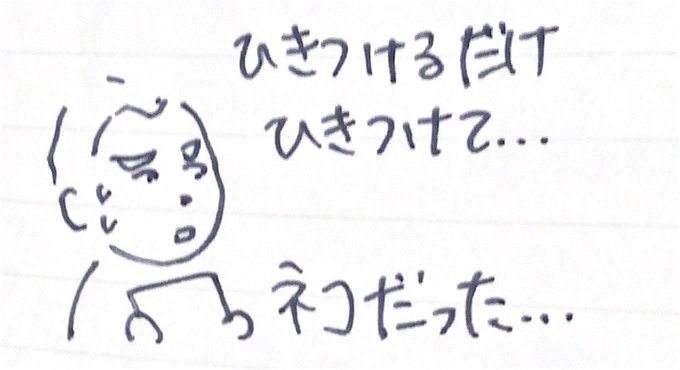 ひきつけるだけ
ひきつけて...
ネコだった...